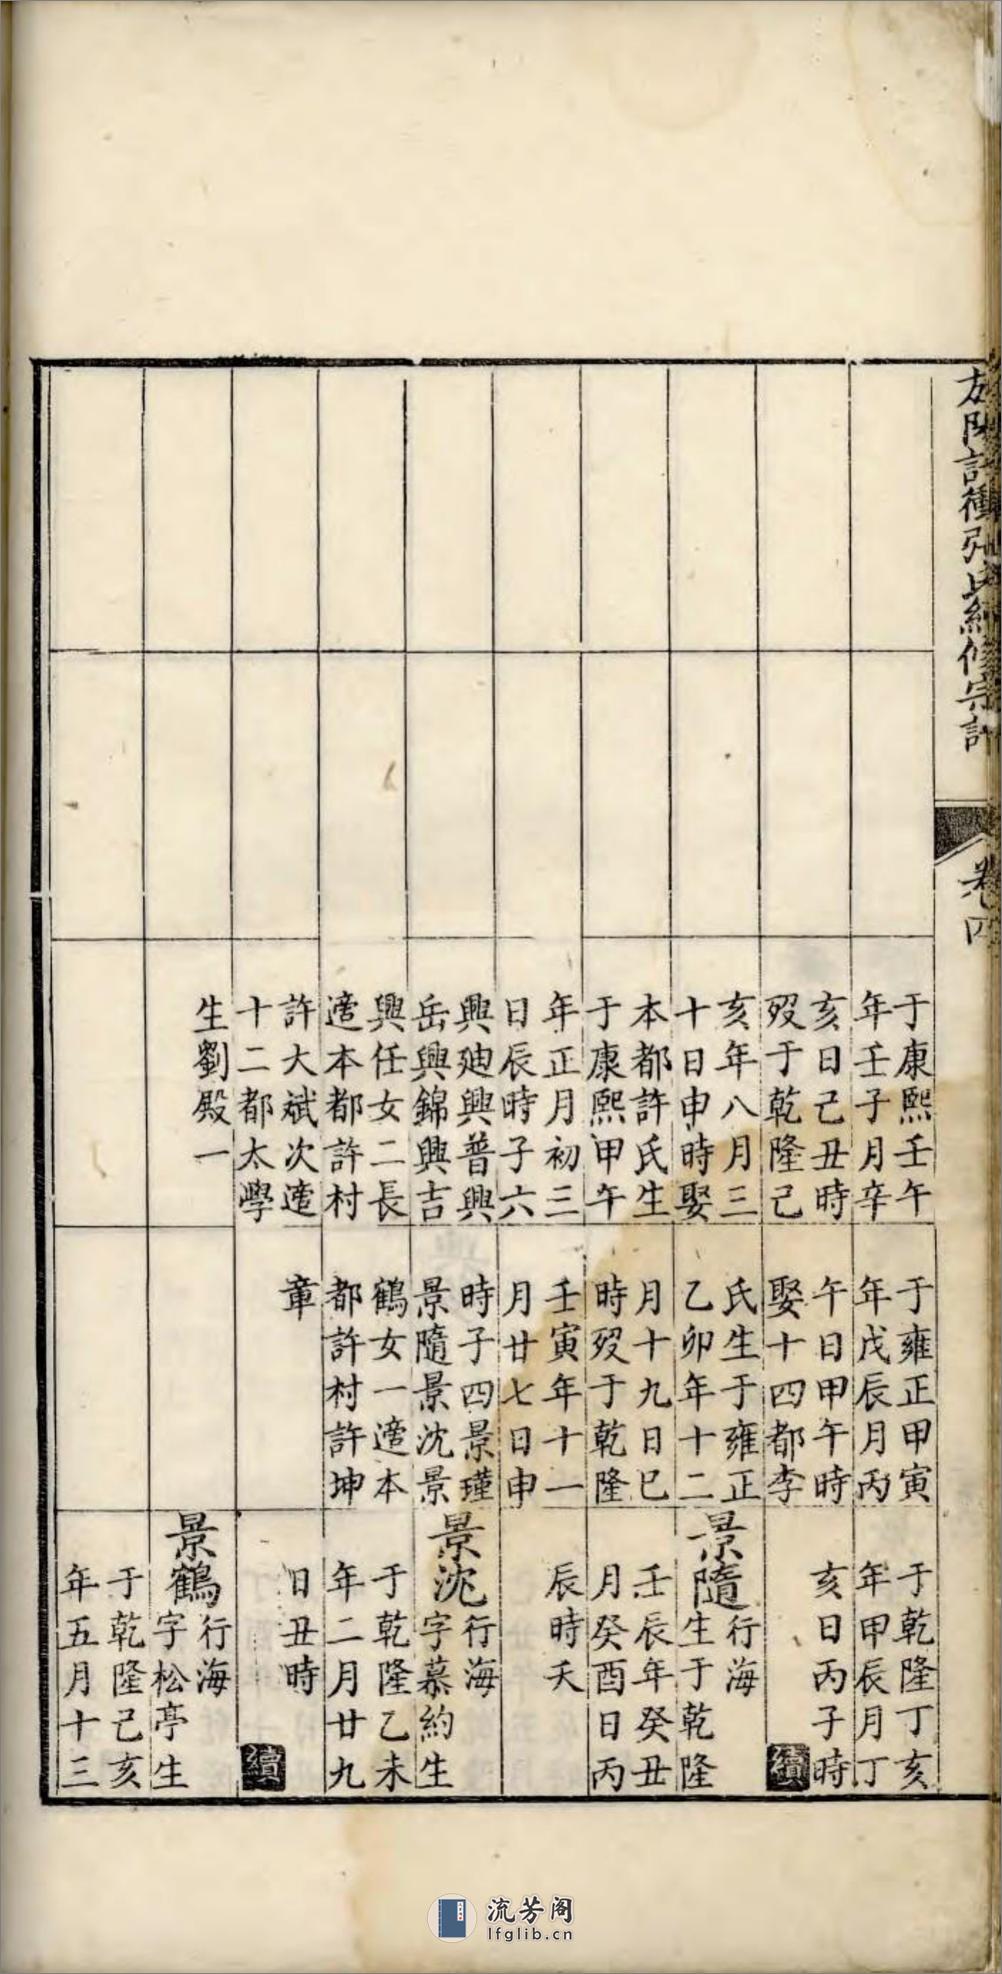 修宗
卷四
于康熙壬午
年壬子月辛
亥日己丑時
歿于乾隆己
亥年八月三
十日申時娶
本都許氏生
于康熙甲午
年正月初三
日辰時子六
興廸興普興
岳興錦興吉
興任女二長
適本都許村
許大斌次適
十二都太學
生劉殿一
于雍正甲寅
年戊辰月丙
午日甲午時
娶十四都李
氏生于雍正
乙卯年十二
月十九日巳
時歿于乾隆
壬寅年十一
月廿七日申
時子四景瑾
景隨景沈景
鶴女一適本
都許村許坤
章
于乾隆丁亥
年甲辰月丁
亥日丙子時
續
景隨
行海
生于乾隆
壬辰年癸丑
月癸酉日丙
辰時夭
景沈
行海
字慕約生
于乾隆乙未
年二月廿九
日丑時
續
景鶴
行海
字松亭生
于乾隆己亥
年五月十三
流芳阁
lfglib.cn